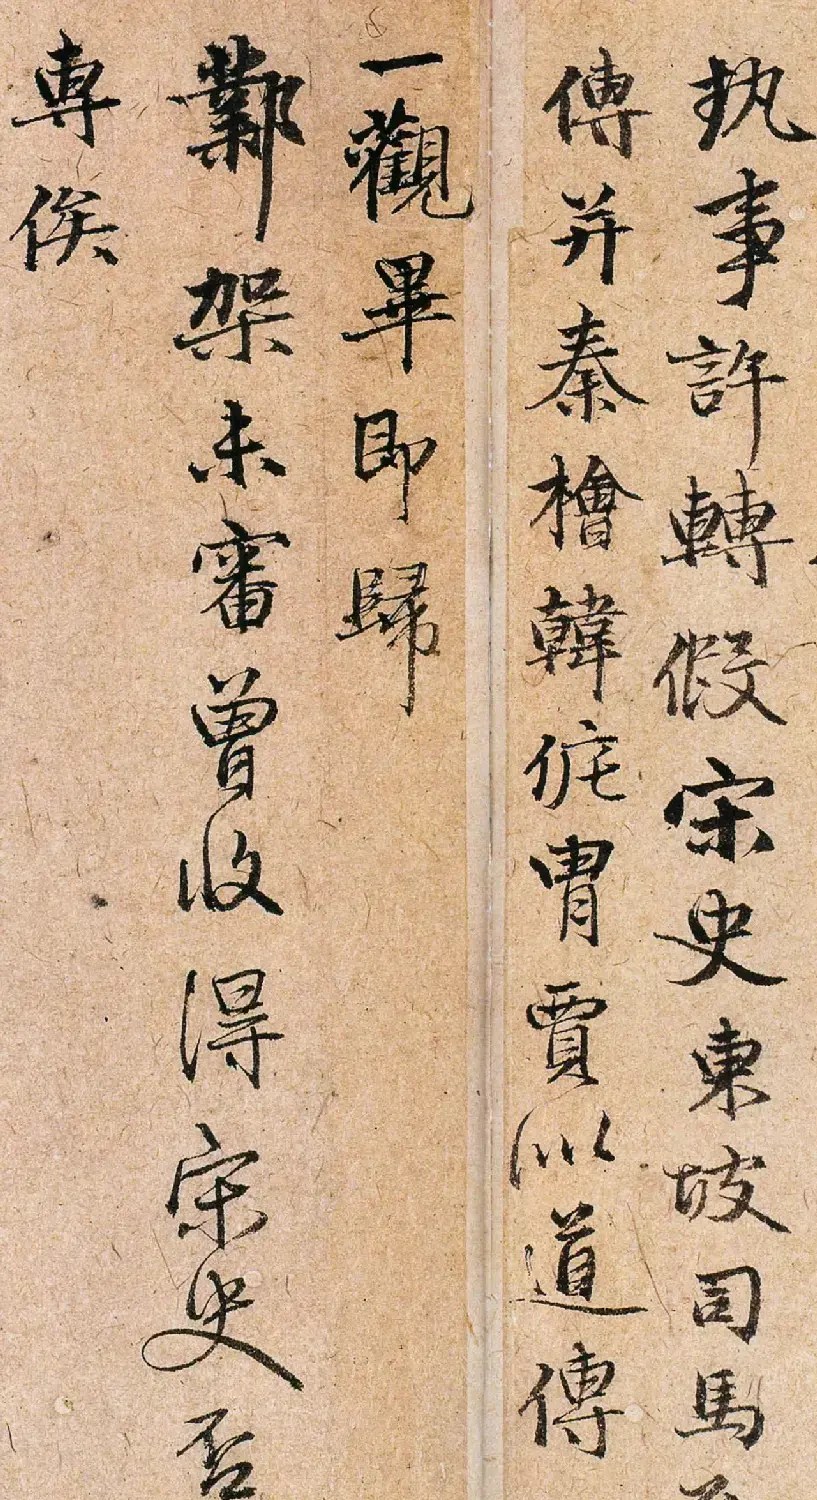 執事許轉假宋史東坡司馬
傳并秦檜韓侂冑賈似道傳
一觀畢即歸
鄴架未審曾收得宋史否
專俟